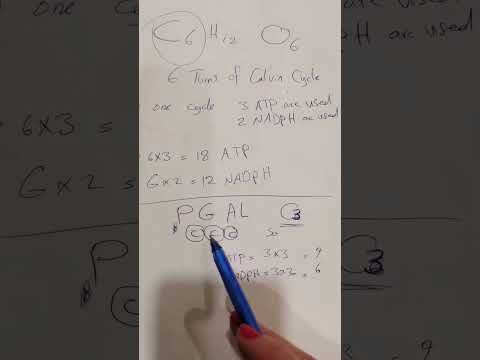 C6 H12 O6
6 Turns of Calvin Cycle
one cycle 3 ATP are used
2 NADPH are used
6x3 = 18 ATP
6x2 = 12 NADPH
PGAL C3
C C C So
ATP = 3x3 = 9
NADPH = 3x2 = 6